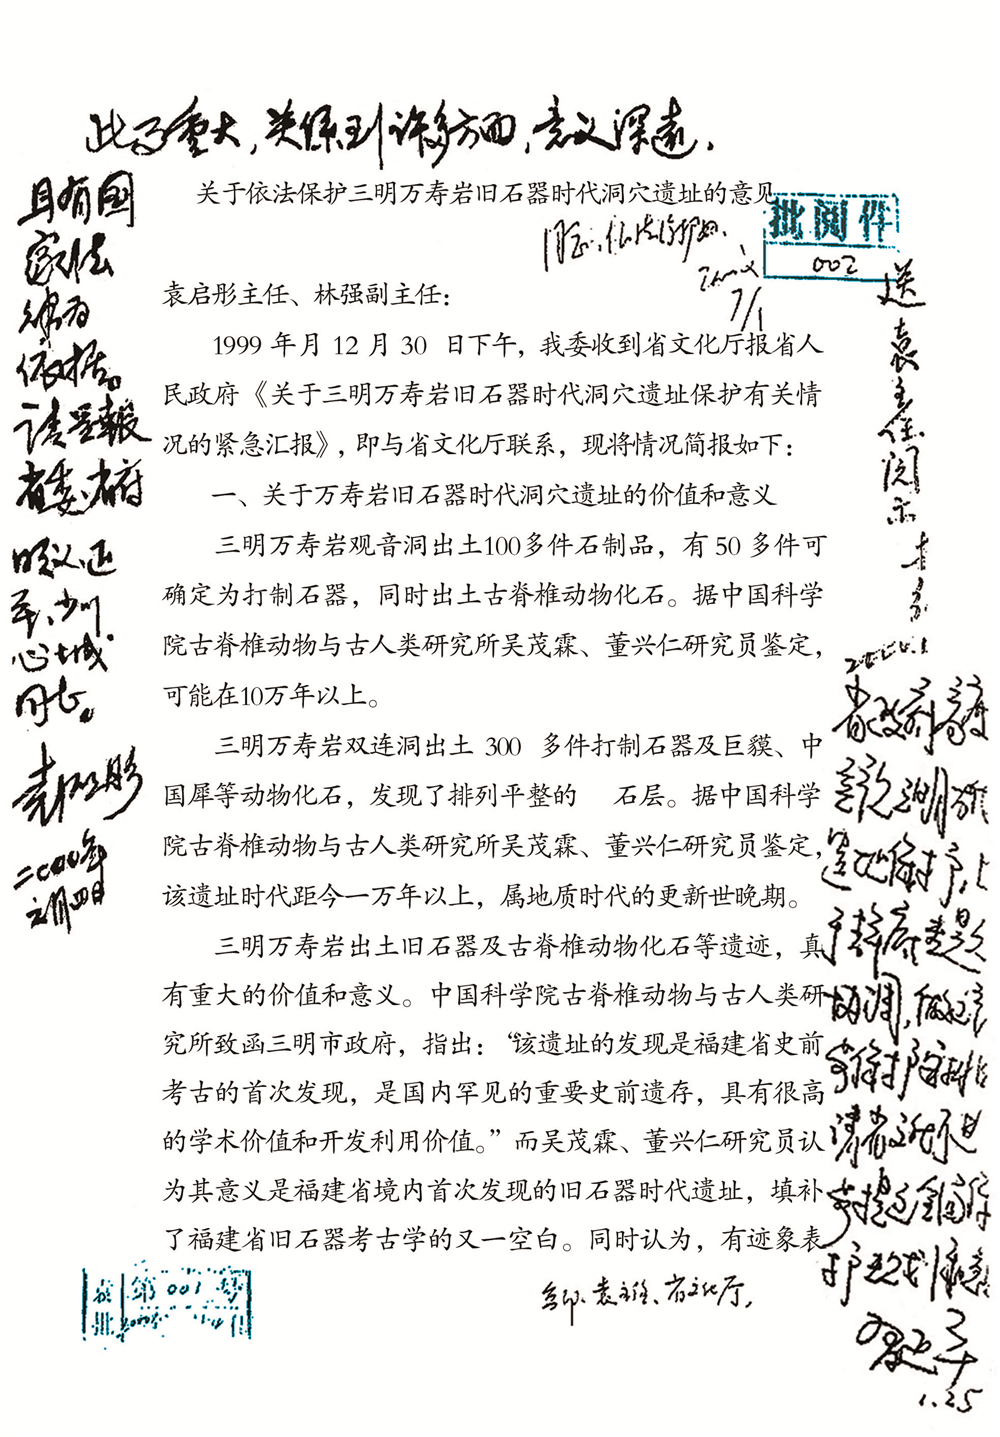 此事重大，关系到许多方面，意义深远。
且有国
家法
律为
依据。
请呈报
省委、省府
明义、近
平、少川
心
同志。
袁启彤
二〇〇〇年
元月四日
关于依法保护三明万寿岩旧石器时代洞穴遗址的意见
同意、依法保护
7/1
批阅件
002
送
袁
主
任
阅
示
2000.1
袁启彤主任、林强副主任：
1999 年月 12 月 30 日下午，我委收到省文化厅报省人
民政府《关于三明万寿岩旧石器时代洞穴遗址保护有关情
况的紧急汇报》，即与省文化厅联系，现将情况简报如下：
一、关于万寿岩旧石器时代洞穴遗址的价值和意义
三明万寿岩观音洞出土100多件石制品，有 50 多件可
确定为打制石器，同时出土古脊椎动物化石。据中国科学
院古脊椎动物与古人类研究所吴茂霖、董兴仁研究员鉴定，
可能在10万年以上。
三明万寿岩双连洞出土 300 多件打制石器及巨貘、中
国犀等动物化石，发现了排列平整的 石层。据中国科学
院古脊椎动物与古人类研究所吴茂霖、董兴仁研究员鉴定，
该遗址时代距今一万年以上，属地质时代的更新世晚期。
三明万寿岩出土旧石器及古脊椎动物化石等遗迹，真
有重大的价值和意义。中国科学院古脊椎动物与古人类研
究所致函三明市政府，指出：“该遗址的发现是福建省史前
考古的首次发现，是国内罕见的重要史前遗存，具有很高
的学术价值和开发利用价值。”而吴茂霖、董兴仁研究员认
为其意义是福建省境内首次发现的旧石器时代遗址，填补
了福建省旧石器考古学的又一空白。同时认为，有迹象表
省政府高度
重视三明
遗址保护，
专题
协调，做好
保护
请省文
提
护规划
习近平
1.25
第 001 号
复印、袁主任、省文化厅。